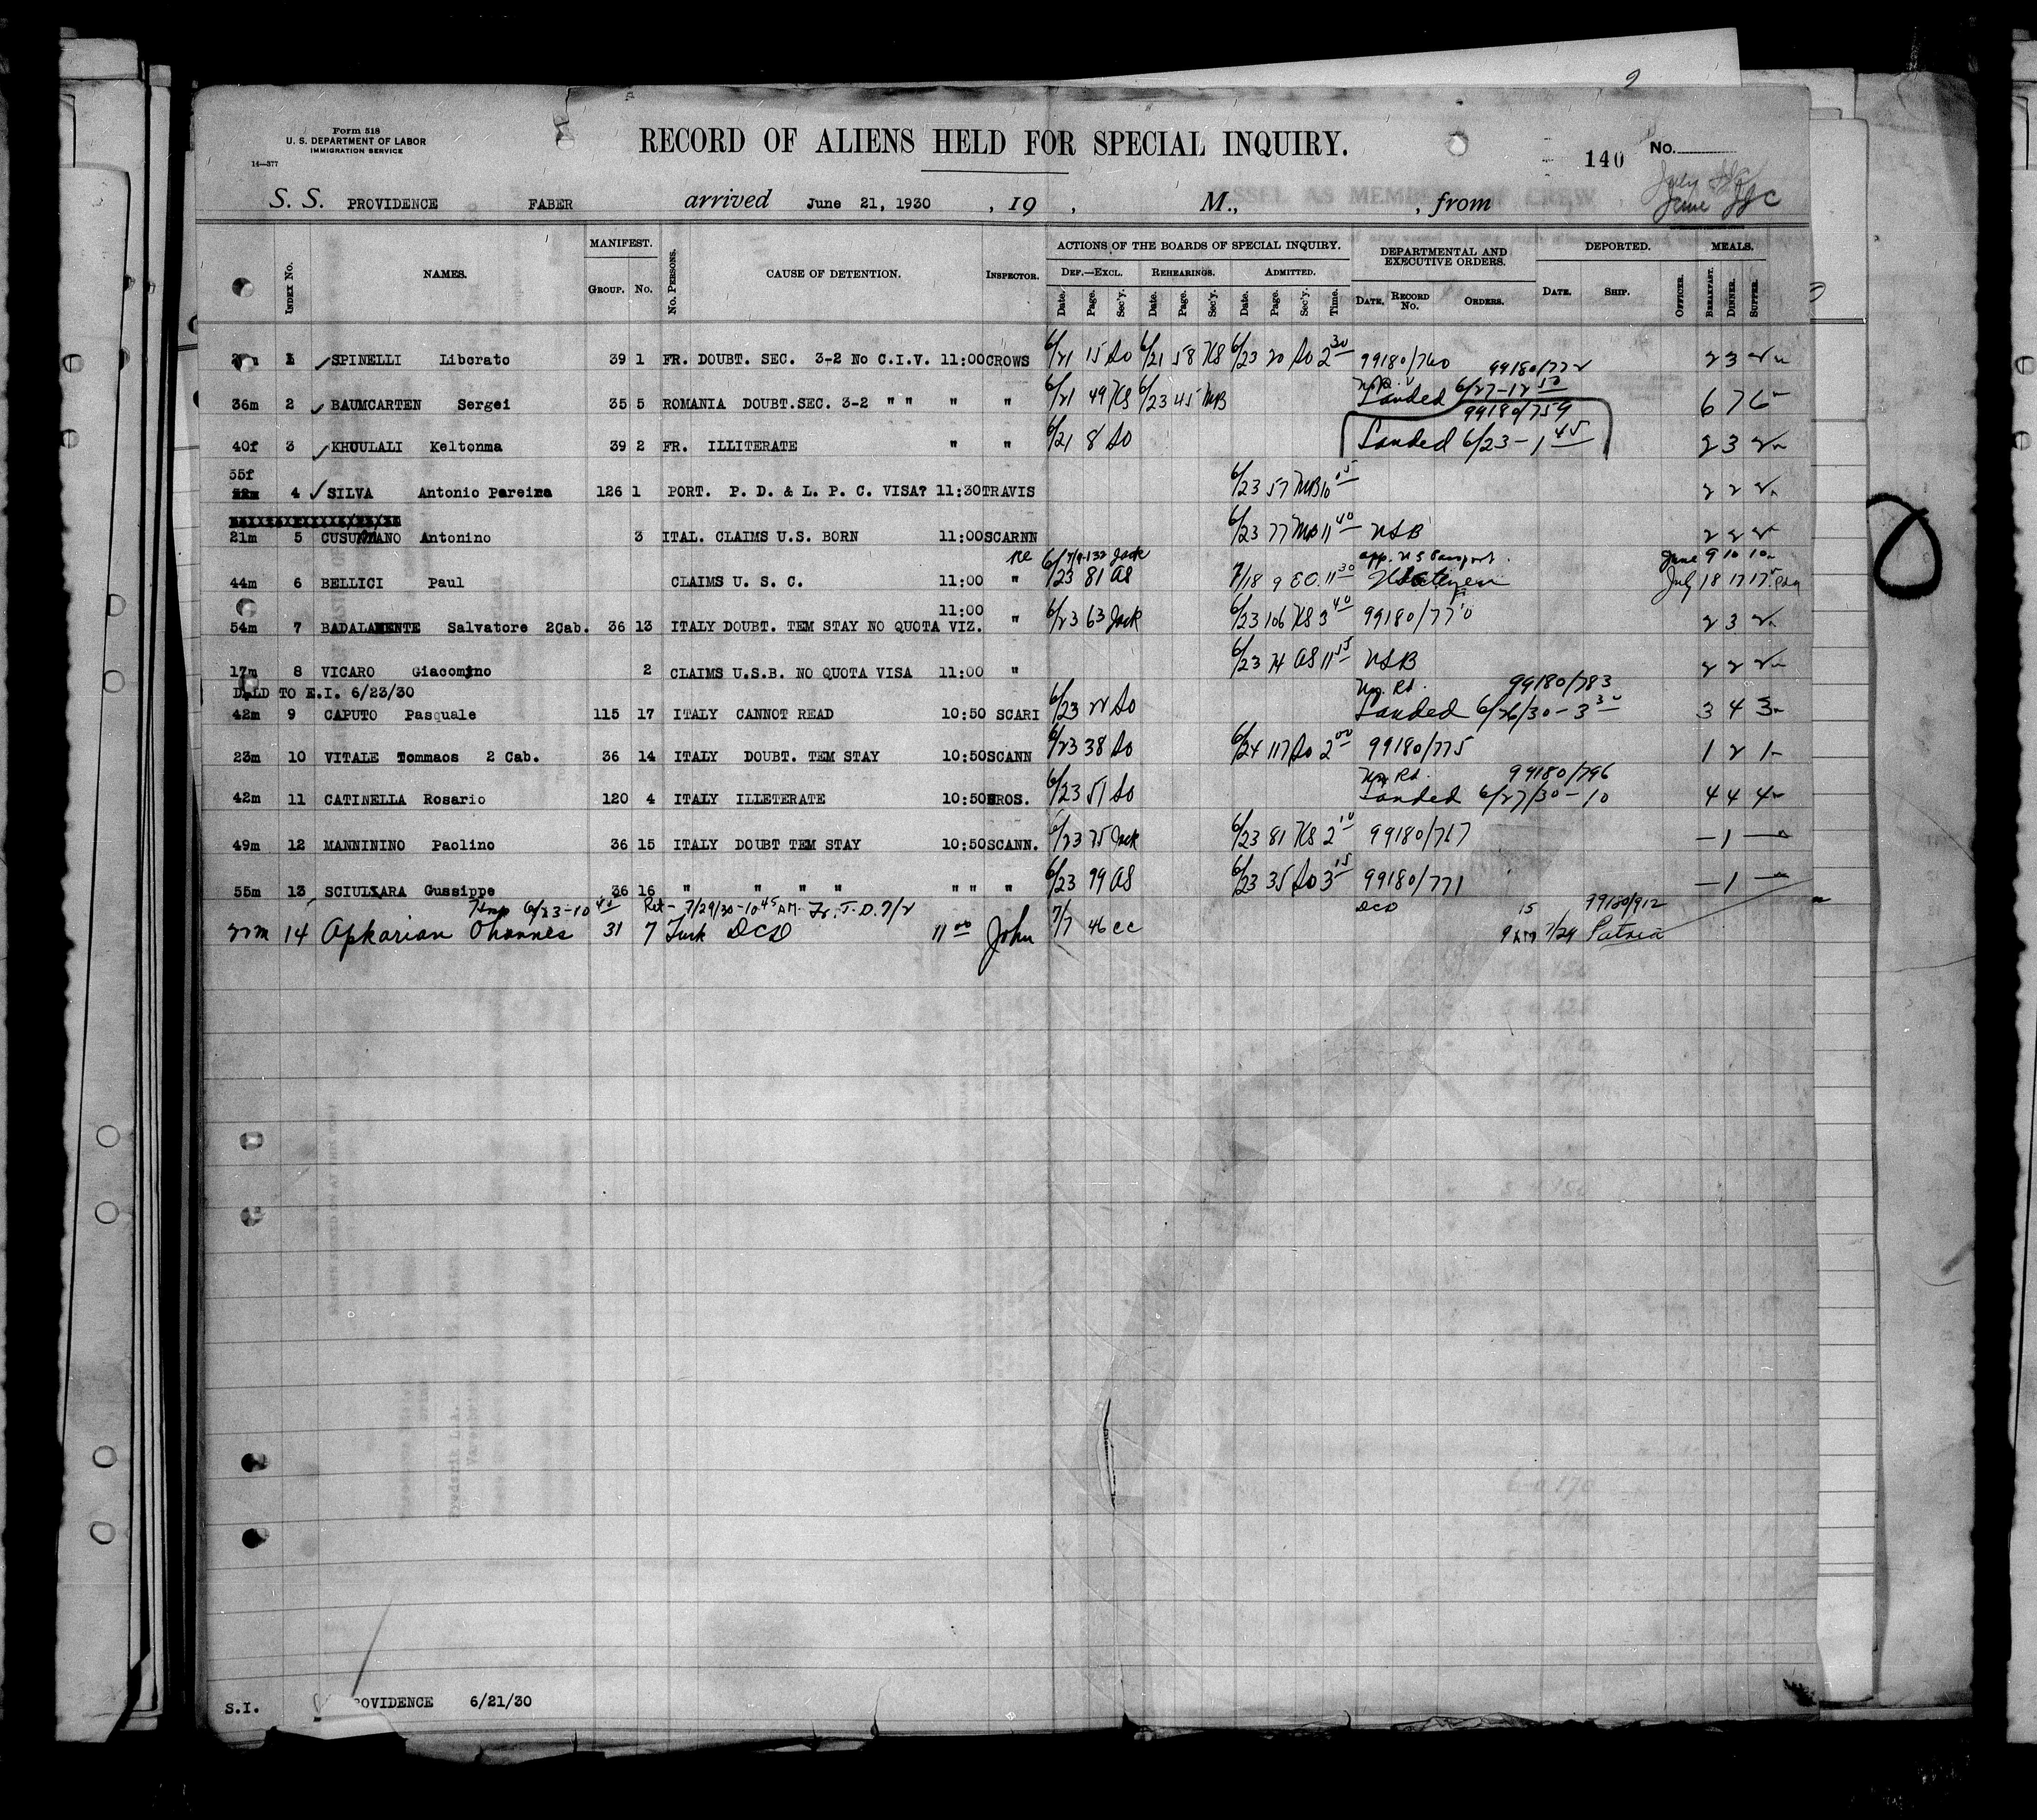 Form 518
U. S. DEPARTMENT OF LABOR
IMMIGRATION SERVICE
14—377
RECORD OF ALIENS HELD FOR SPECIAL INQUIRY.
140 No.
S. S. PROVIDENCE FABER arrived June 21, 1930 , 19 , M., , from
INDEX No. NAMES. MANIFEST. GROUP. No. No. PERSONS. CAUSE OF DETENTION. INSPECTOR. ACTIONS OF THE BOARDS OF SPECIAL INQUIRY. DEF.—EXCL. Date. Page. Sec'y. REHEARINGS. Date. Page. Sec'y. ADMITTED. Date. Page. Sec'y. Time. DEPARTMENTAL AND EXECUTIVE ORDERS. DATE. RECORD No. ORDERS. DEPORTED. DATE. SHIP. OFFICER. MEALS. BREAKFAST. DINNER. SUPPER.
1 SPINELLI Liborato 39 1 FR. DOUBT. SEC. 3-2 No C.I.V. 11:00 CROWS 6/21 15 So 6/21 58 KS 6/23 20 So 2 30 99180/760 2 3 2
99180/772
36m 2 BAUMCARTEN Sergei 35 5 ROMANIA DOUBT.SEC. 3-2 " " " " 6/21 49 KS 6/23 45 MB Landed 6/27-12 10 6 7 6
99180/759
40f 3 KHOULALI Keltonma 39 2 FR. ILLITERATE " " 6/21 8 So Landed 6/23-1 45 2 3 2
55f
4 SILVA Antonio Pareira 126 1 PORT. P. D. & L. P. C. VISA? 11:30 TRAVIS 6/23 57 MB 10 15 2 2 2
21m 5 CUSUMANO Antonino 3 ITAL. CLAIMS U.S. BORN 11:00 SCARNN 6/23 77 MB 11 40 USB 2 2 2
Re 7/9-132 Jack app. U S Passport. June 9 10 10
44m 6 BELLICI Paul CLAIMS U. S. C. 11:00 " 6/23 81 AS 7/18 9 EO 11 30 July 18 17 17
11:00
54m 7 BADALAMENTE Salvatore 2Cab. 36 13 ITALY DOUBT. TEM STAY NO QUOTA VIZ. " 6/23 63 Jack 6/23 106 KS 3 40 99180/770 2 3 2
17m 8 VICARO Giacomino 2 CLAIMS U.S.B. NO QUOTA VISA 11:00 " 6/23 74 AS 11 55 USB 2 2 2
DELD TO E.I. 6/23/30 99180/783
42m 9 CAPUTO Pasquale 115 17 ITALY CANNOT READ 10:50 SCARI 6/23 22 So Landed 6/26/30-3 30 3 4 3
23m 10 VITALE Tommaos 2 Cab. 36 14 ITALY DOUBT. TEM STAY 10:50 SCANN 6/23 38 So 6/24 117 So 2 00 99180/775 1 2 1
99180/796
42m 11 CATINELLA Rosario 120 4 ITALY ILLETERATE 10:50 BROS. 6/23 51 So Landed 6/27/30-10 4 4 4
49m 12 MANNININO Paolino 36 15 ITALY DOUBT TEM STAY 10:50 SCANN. 6/23 75 Jack 6/23 81 KS 2 10 99180/767 — 1 —
55m 13 SCIULLARA Gussippe 36 16 " " " " " " " 6/23 99 AS 6/23 35 So 3 15 99180/771 — 1 —
Hosp 6/23-10 40 Ret- 7/29/30-10 45 AM. Fr. T.D. 7/2 DCD 15 99180/912
22m 14 Apkarian Ohannes 31 7 Turk DCD 11 00 John 7/7 46 CC 9 AM 7/29 Patria
S.I. PROVIDENCE 6/21/30